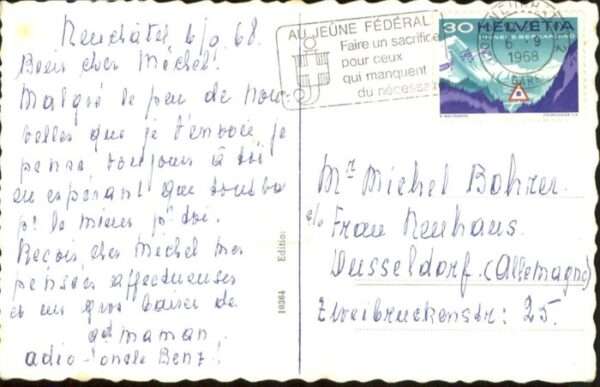 Neuchâtel 6/9 68.
Bien cher Michel!
Malgré le peu de nou-
velles que je t'envoie, je
pense toujours à toi
en espérant que tout va
pr le mieux pr toi.
Reçois cher Michel mes
pensées affectueuses
et un gros baiser de
gd maman.
adio - oncle Benz!
10364 Edition
AU JEÛNE FÉDÉRAL
Faire un sacrifice
pour ceux
qui manquent
du nécessaire
30 HELVETIA
6-9
1968
Mr Michel Bohrer.
c/o Frau Neuhaus.
Dusseldorf. (Allemagne)
Zweibruckenstr: 25.